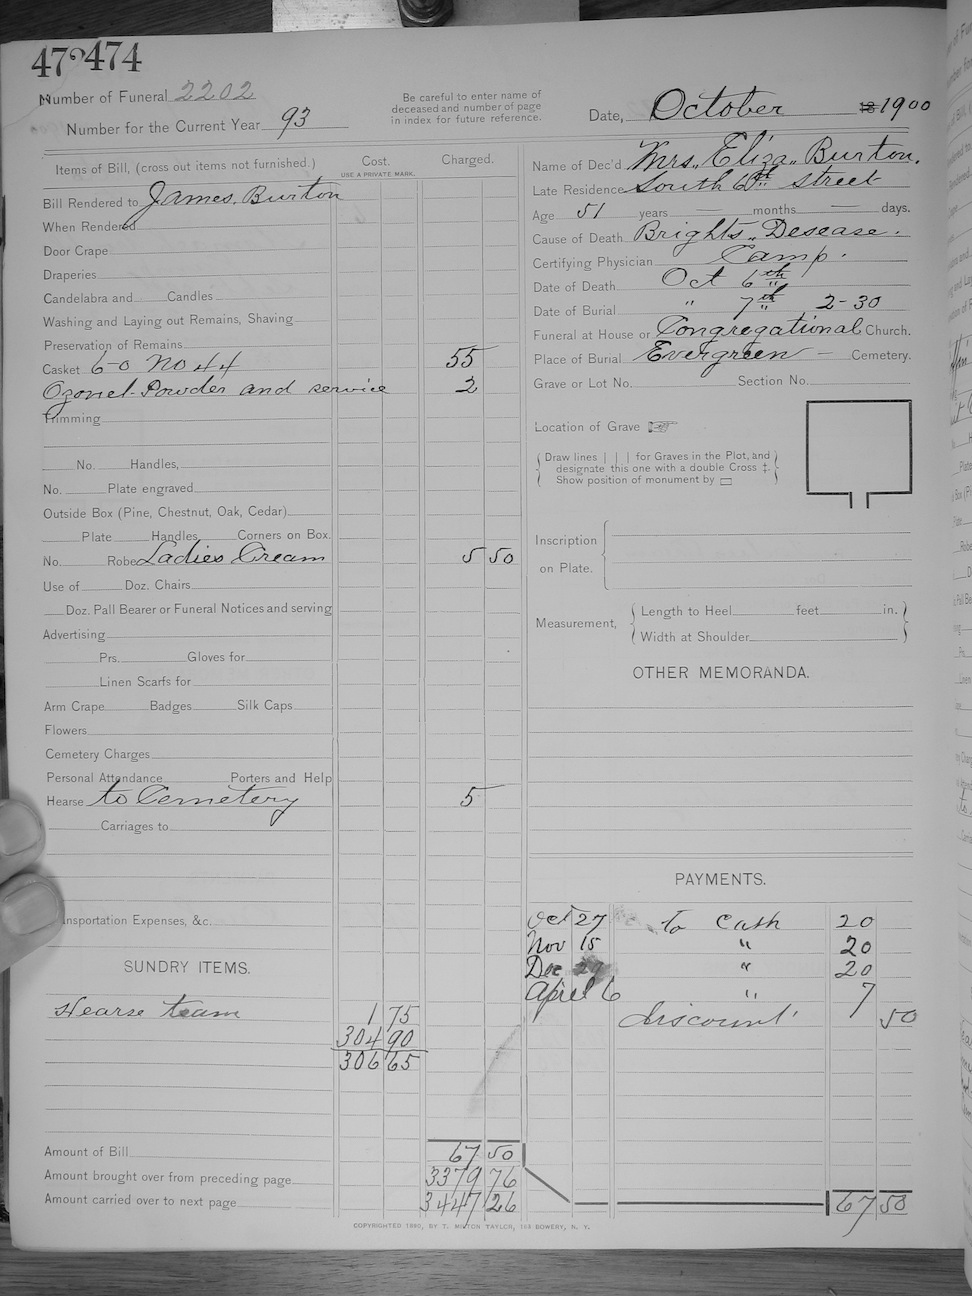 474
Number of Funeral 2202
Number for the Current Year 93
Be careful to enter name of
deceased and number of page
in index for future reference.
Date, October 18 1900
Items of Bill, (cross out items not furnished.)
Cost.
USE A PRIVATE MARK.
Charged.
Bill Rendered to James. Burton
When Rendered
Door Crape
Draperies
Candelabra and Candles
Washing and Laying out Remains, Shaving
Preservation of Remains
Casket 6-0 No 44 55
Ozonel Powder and service 2
Trimming
No. Handles,
No. Plate engraved
Outside Box (Pine, Chestnut, Oak, Cedar)
Plate Handles Corners on Box.
No. Robe Ladies Cream 5 50
Use of Doz. Chairs
Doz. Pall Bearer or Funeral Notices and serving
Advertising
Prs. Gloves for
Linen Scarfs for
Arm Crape Badges Silk Caps
Flowers
Cemetery Charges
Personal Attendance Porters and Help
Hearse to Cemetery 5
Carriages to
nsportation Expenses, &c.
SUNDRY ITEMS.
Hearse team 1 75
304 90
306 65
Amount of Bill 67 50
Amount brought over from preceding page 3379 76
Amount carried over to next page 3447 26
Name of Dec'd Mrs. Eliza Burton.
Late Residence South 6th street
Age 51 years — months — days.
Cause of Death Brights Desease.
Certifying Physician Camp.
Date of Death Oct 6th
Date of Burial " 7th 2-30
Funeral at House or Congregational Church.
Place of Burial Evergreen — Cemetery.
Grave or Lot No. Section No.
Location of Grave
Draw lines | | | for Graves in the Plot, and
designate this one with a double Cross ‡.
Show position of monument by ▭
Inscription
on Plate.
Measurement,
Length to Heel feet in.
Width at Shoulder
OTHER MEMORANDA.
PAYMENTS.
Oct 27 to Cash 20
Nov 15 " 20
Dec 27 " 20
April 6 " 7
discount 50
67 50
COPYRIGHTED 1890, BY T. MILTON TAYLOR, 153 BOWERY, N. Y.